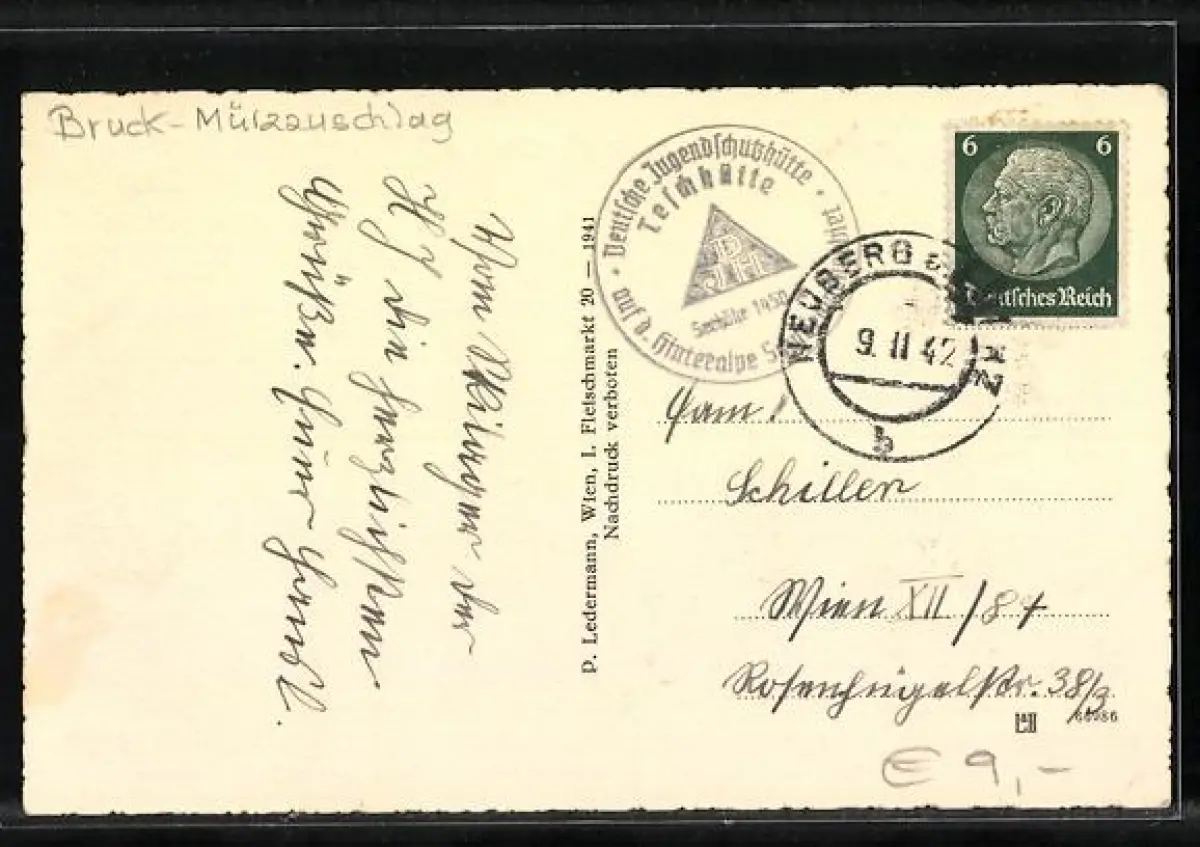 Bruck-Mürzzuschlag
Vom Skikurs der
HJ die herzlichsten
Grüßen. Euer
P. Ledermann, Wien, I. Fleischmarkt 20 – 1941
Nachdruck verboten
Deutsche Jugendschutzhütte
Teschhütte
DJH
Seehöhe 1450
auf d. Hinteralpe
6 6
Deutsches Reich
NEUBERG
9. II 42
b
Fam.
Schiller
Wien XII/87
Rosenhügelstr. 38/3
66986
€ 9,-